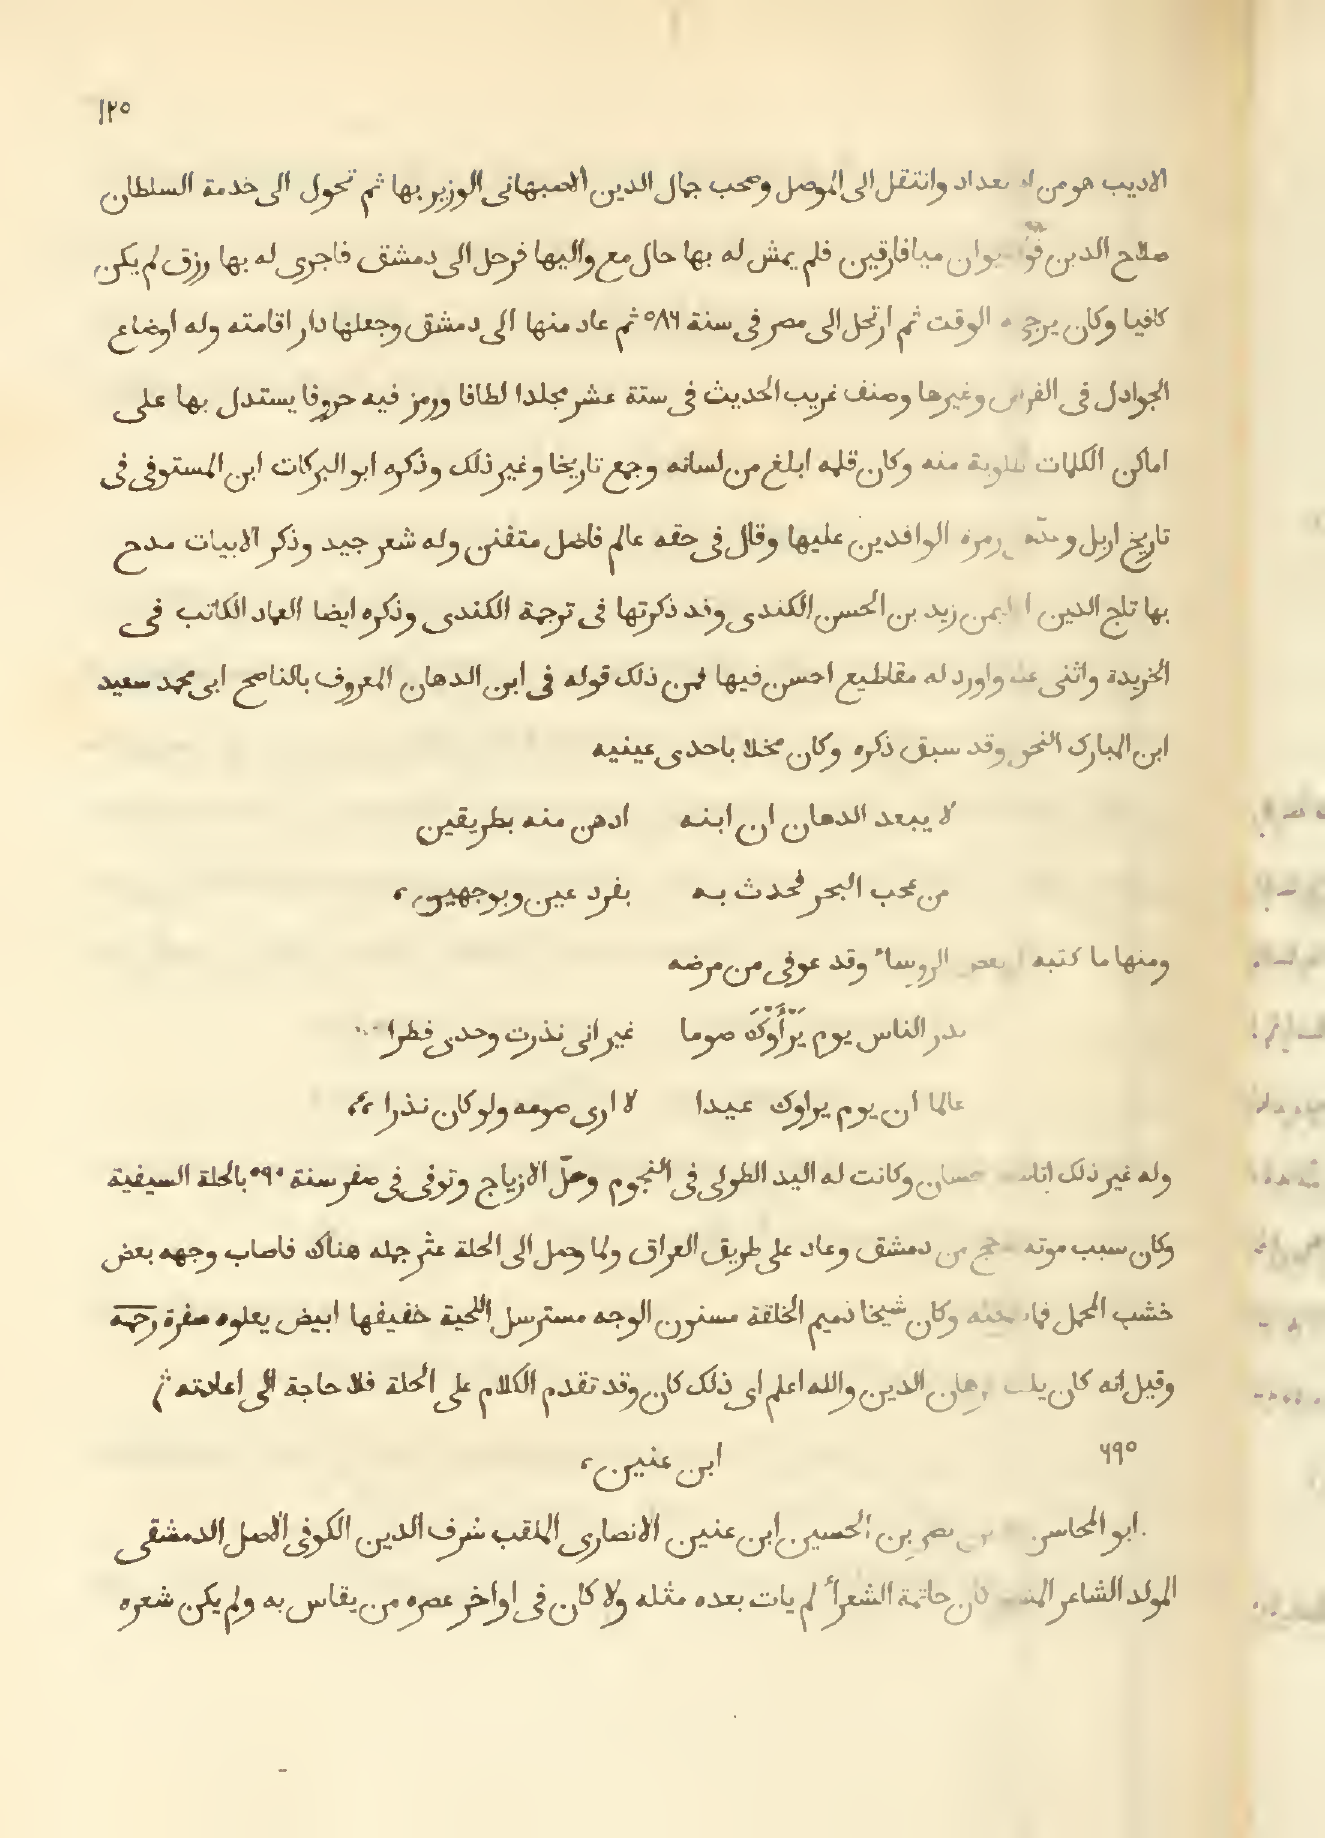 ١٢٥
الاديب هو من بغداد وانتقل الى الموصل وصحب جمال الدين الاصبهانى الوزير بها ثم تحول الى خدمة السلطان
صلاح الدين ميافارقين فلم يمش له بها حال مع واليها فرحل الى دمشق فاجرى له بها رزق لم يكن
كافيا وكان يزجى الوقت ثم ارتحل الى مصر فى سنة ٥٨٦ ثم عاد منها الى دمشق وجعلها دار اقامته وله اوضاع
الجوادل فى وغيرها وصنف غريب الحديث فى ستة عشر مجلدا لطافا ورمز فيه حروفا يستدل بها على
اماكن الكلمات منه وكان قلمه ابلغ من لسانه وجمع تاريخا وغير ذلك وذكره ابو البركات ابن المستوفى فى
تاريخ اربل زمرة الوافدين عليها وقال فى حقه عالم فاضل متفنن وله شعر جيد وذكر الابيات مدح
بها تاج الدين زيد بن الحسن الكندى وقد ذكرتها فى ترجمة الكندى وذكره ايضا العماد الكاتب فى
الخريدة واثنى واورد له مقاطيع احسن فيها فمن ذلك قوله فى ابن الدهان المعروف بالناصح ابى محمد سعيد
ابن المبارك النحوى وقد سبق ذكره وكان مخلا باحدى عينيه
لا يبعد الدهان ان ابنه ادهن منه بطريقين
من عجب البحر فحدث به بفرد عين وبوجهين
ومنها ما كتبه بعض الروساء وقد عوفى من مرضه
الناس يوم يَرَأَوْكَ صوما غير انى نذرت وحدى فطرا
عالما ان يوم يراوك عيدا لا ارى صومه ولو كان نذرا
وله غير ذلك حسان وكانت له اليد الطولى فى النجوم وحلّ الازياج وتوفى فى صفر سنة ٥٩٠ بالحلة السيفية
وكان سبب موته حج من دمشق وعاد على طريق العراق ولما وصل الى الحلة عثر جمله هناك فاصاب وجهه بعض
خشب المحمل وكان شيخا ذميم الخلقة مسنون الوجه مسترسل اللحية خفيفها ابيض يعلوه صفرة رحمه
وقيل انه كان الدين والله اعلم اى ذلك كان وقد تقدم الكلام على الحلة فلا حاجة الى اعادته
٦٩٠ ابن عنين
ابو المحاسن نصر بن الحسين ابن عنين الانصارى الملقب شرف الدين الكوفى الاصل الدمشقى
المولد الشاعر كان خاتمة الشعراء لم يات بعده مثله ولا كان فى اواخر عصره من يقاس به ولم يكن شعره